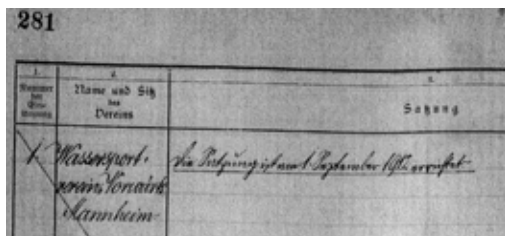 281
1.
2.
3.
Nummer
der
Ein-
tragung
Name und Sitz
des
Vereins
Satzung
1.
Wassersport-
verein Vorwärts
Mannheim
Die Satzung ist am 1. September errichtet.